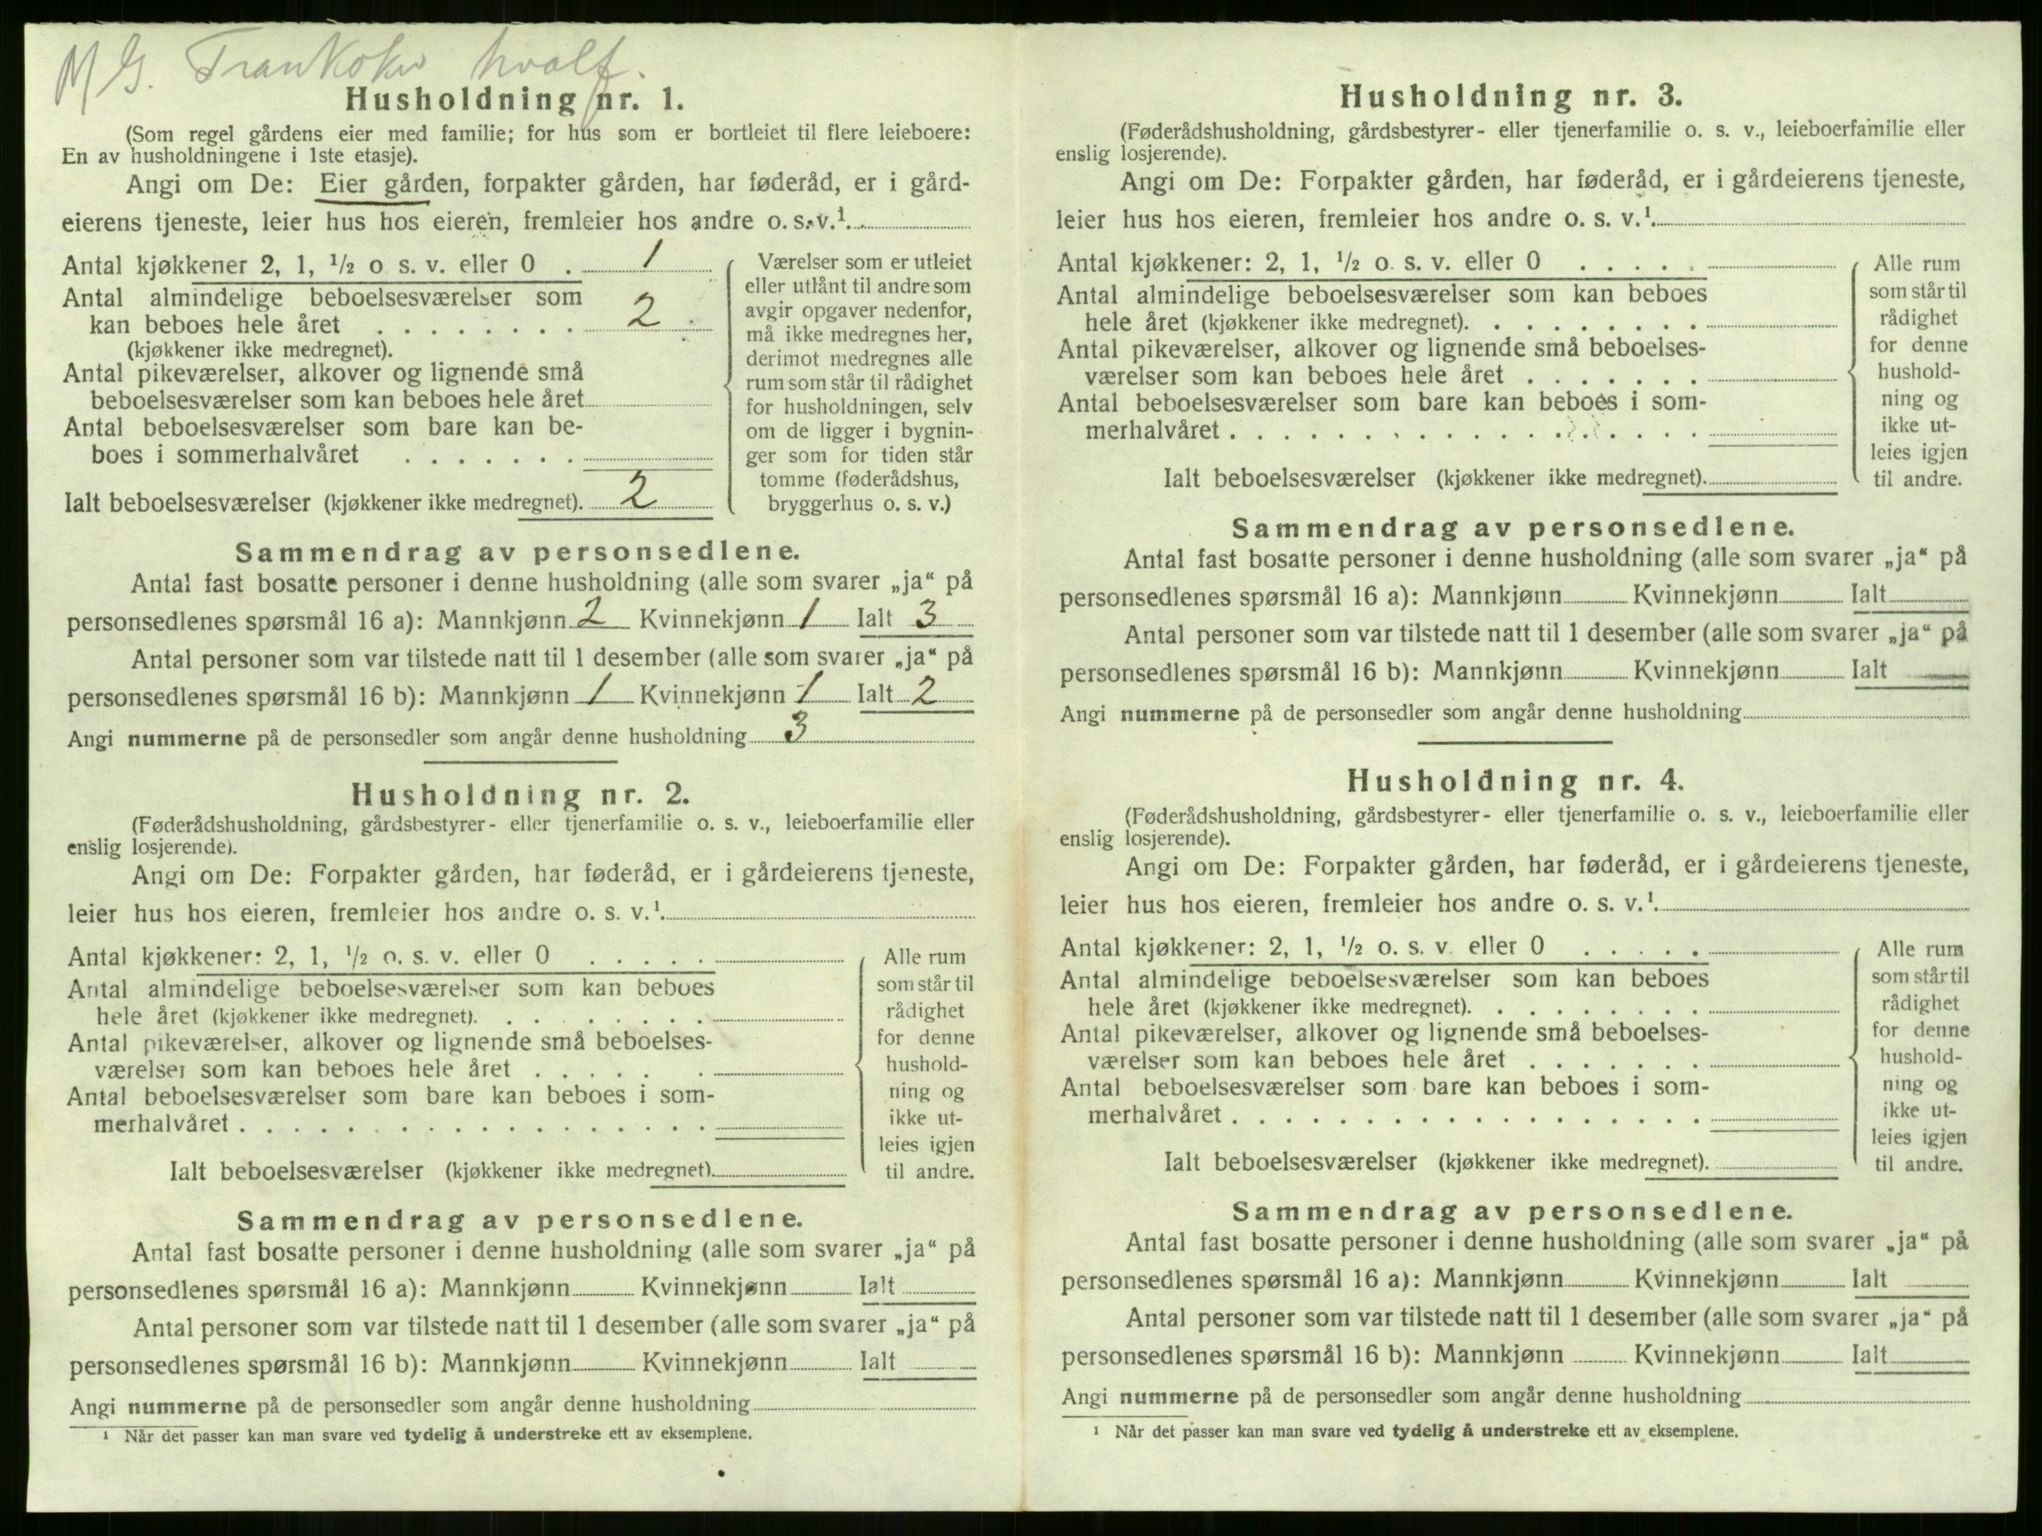 M G. Trankoker hvalf.
Husholdning nr. 1.
(Som regel gårdens eier med familie; for hus som er bortleiet til flere leieboere:
En av husholdningene i 1ste etasje).
Angi om De: Eier gården, forpakter gården, har føderåd, er i gård-
eierens tjeneste, leier hus hos eieren, fremleier hos andre o. s. v.¹.
Antal kjøkkener 2, 1, ½ o s. v. eller 0 . 1
Antal almindelige beboelsesværelser som
kan beboes hele året . . . . . . . . 2
(kjøkkener ikke medregnet).
Antal pikeværelser, alkover og lignende små
beboelsesværelser som kan beboes hele året
Antal beboelsesværelser som bare kan be-
boes i sommerhalvåret . . . . . . .
Ialt beboelsesværelser (kjøkkener ikke medregnet). 2
Værelser som er utleiet
eller utlånt til andre som
avgir opgaver nedenfor,
må ikke medregnes her,
derimot medregnes alle
rum som står til rådighet
for husholdningen, selv
om de ligger i bygnin-
ger som for tiden står
tomme (føderådshus,
bryggerhus o. s. v.)
Sammendrag av personsedlene.
Antal fast bosatte personer i denne husholdning (alle som svarer „ja“ på
personsedlenes spørsmål 16 a): Mannkjønn 2 Kvinnekjønn 1 Ialt 3
Antal personer som var tilstede natt til 1 desember (alle som svarer „ja“ på
personsedlenes spørsmål 16 b): Mannkjønn 1 Kvinnekjønn 1 Ialt 2
Angi nummerne på de personsedler som angår denne husholdning 3
Husholdning nr. 2.
(Føderådshusholdning, gårdsbestyrer- eller tjenerfamilie o. s. v., leieboerfamilie eller
enslig losjerende).
Angi om De: Forpakter gården, har føderåd, er i gårdeierens tjeneste,
leier hus hos eieren, fremleier hos andre o. s. v.¹.
Antal kjøkkener: 2, 1, ½ o. s. v. eller 0 . . . . .
Antal almindelige beboelsesværelser som kan beboes
hele året (kjøkkener ikke medregnet). . . . . . . . .
Antal pikeværelser, alkover og lignende små beboelses-
værelser som kan beboes hele året . . . . . . .
Antal beboelsesværelser som bare kan beboes i som-
merhalvåret . . . . . . . . . . . . . . . . . .
Ialt beboelsesværelser (kjøkkener ikke medregnet).
Alle rum
som står til
rådighet
for denne
hushold-
ning og
ikke ut-
leies igjen
til andre.
Sammendrag av personsedlene.
Antal fast bosatte personer i denne husholdning (alle som svarer „ja“ på
personsedlenes spørsmål 16 a): Mannkjønn Kvinnekjønn Ialt
Antal personer som var tilstede natt til 1 desember (alle som svarer „ja“ på
personsedlenes spørsmål 16 b): Mannkjønn Kvinnekjønn Ialt
Angi nummerne på de personsedler som angår denne husholdning
¹ Når det passer kan man svare ved tydelig å understreke ett av eksemplene.
Husholdning nr. 3.
(Føderådshusholdning, gårdsbestyrer- eller tjenerfamilie o. s. v., leieboerfamilie eller
enslig losjerende).
Angi om De: Forpakter gården, har føderåd, er i gårdeierens tjeneste,
leier hus hos eieren, fremleier hos andre o. s. v.¹.
Antal kjøkkener: 2, 1, ½ o. s. v. eller 0 . . . . .
Antal almindelige beboelsesværelser som kan beboes
hele året (kjøkkener ikke medregnet). . . . . . . . .
Antal pikeværelser, alkover og lignende små beboelses-
værelser som kan beboes hele året . . . . . . .
Antal beboelsesværelser som bare kan beboes i som-
merhalvåret . . . . . . . . . . . . . . . . . .
Ialt beboelsesværelser (kjøkkener ikke medregnet).
Alle rum
som står til
rådighet
for denne
hushold-
ning og
ikke ut-
leies igjen
til andre.
Sammendrag av personsedlene.
Antal fast bosatte personer i denne husholdning (alle som svarer „ja“ på
personsedlenes spørsmål 16 a): Mannkjønn Kvinnekjønn Ialt
Antal personer som var tilstede natt til 1 desember (alle som svarer „ja“ på
personsedlenes spørsmål 16 b): Mannkjønn Kvinnekjønn Ialt
Angi nummerne på de personsedler som angår denne husholdning
Husholdning nr. 4.
(Føderådshusholdning, gårdsbestyrer- eller tjenerfamilie o. s. v., leieboerfamilie eller
enslig losjerende).
Angi om De: Forpakter gården, har føderåd, er i gårdeierens tjeneste,
leier hus hos eieren, fremleier hos andre o. s. v.¹.
Antal kjøkkener: 2, 1, ½ o. s. v eller 0 . . . . .
Antal almindelige beboelsesværelser som kan beboes
hele året (kjøkkener ikke medregnet). . . . . . . . .
Antal pikeværelser, alkover og lignende små beboelses-
værelser som kan beboes hele året . . . . . . .
Antal beboelsesværelser som bare kan beboes i som-
merhalvåret . . . . . . . . . . . . . . . . . .
Ialt beboelsesværelser (kjøkkener ikke medregnet).
Alle rum
som står til
rådighet
for denne
hushold-
ning og
ikke ut-
leies igjen
til andre.
Sammendrag av personsedlene.
Antal fast bosatte personer i denne husholdning (alle som svarer „ja“ på
personsedlenes spørsmål 16 a): Mannkjønn Kvinnekjønn Ialt
Antal personer som var tilstede natt til 1 desember (alle som svarer „ja“ på
personsedlenes spørsmål 16 b): Mannkjønn Kvinnekjønn Ialt
Angi nummerne på de personsedler som angår denne husholdning
¹ Når det passer kan man svare ved tydelig å understreke ett av eksemplene.